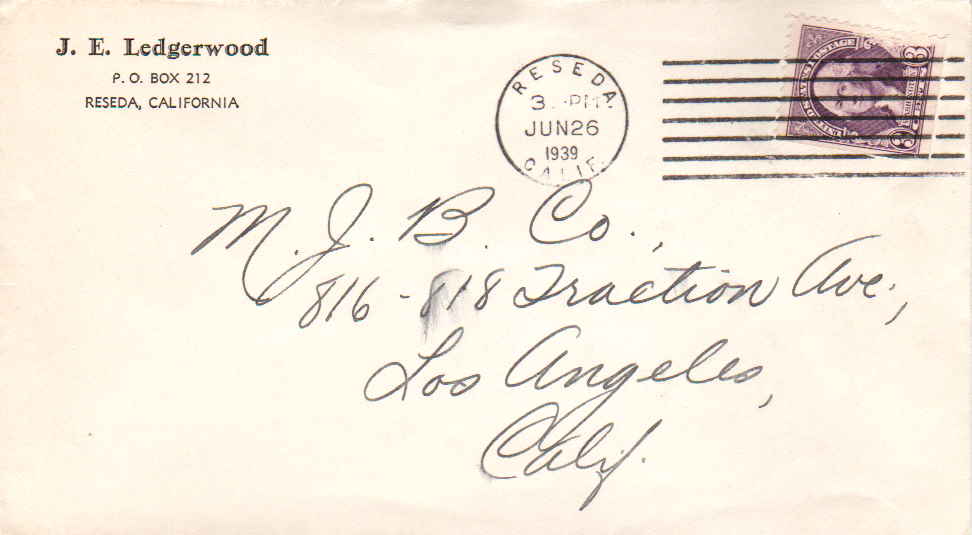 J. E. Ledgerwood
P. O. BOX 212
RESEDA, CALIFORNIA
RESEDA
3 PM
JUN 26
1939
CALIF.
UNITED STATES POSTAGE
3 3
M. J. B. Co.,
816 - 818 Traction Ave.,
Los Angeles,
Calif.